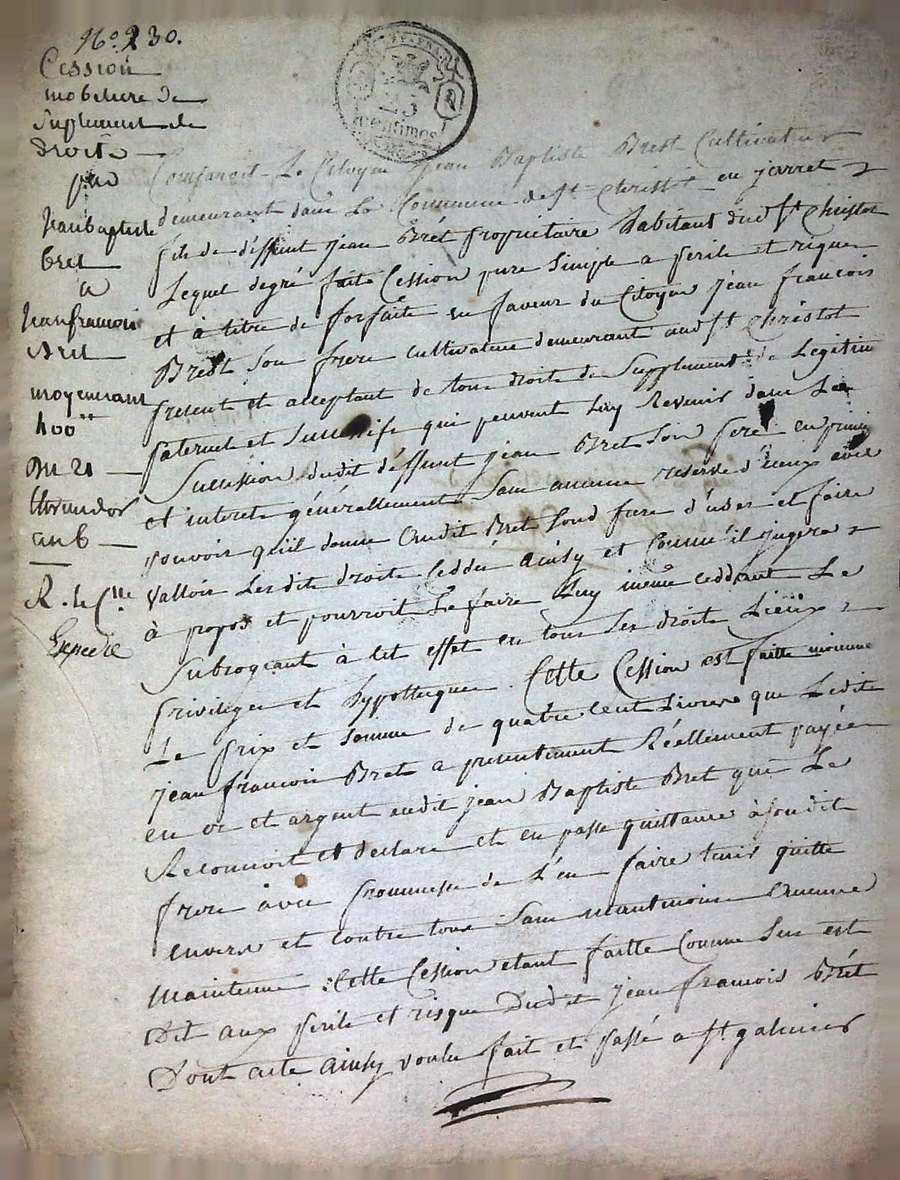 No. 230.
Cession
mobiliere de
suplement de
droits
par
Jean baptiste
bret
a
Jean francois
Bret
moyennant
400 tt
Du 21
thermidor
an 6
R. le Cen
Expedié
25
centimes
Comparoit Le Citoyen Jean Baptiste Brest Cultivateur
demeurant dans La Commune de St Christot en jarret
fils de déffunt jean Brét Propriétaire habitant dudt St Christot
Lequel degré faite Cession pure Simple a perils et risques
et à titre de forfaite en faveur du Citoyen jean francois
Brest Son frere Cultivateur demeurant audt St Christot
present et acceptant de tous droits de Supplement de Legitime
paternel et Successifs qui peuvent Luy Revenir dans La
Succession dudit déffunt jean Bret Son pere en princip
et interets générallement Sans aucune reserve d'iceux avec
pouvoir qu'il donne Audit Bret Sond frere d'user et faire
Valloir Lesdits droits Ceddés Ainsy et Comme il jugera
à propos et pourroit Le faire Luy même ceddant Le
Subrogeant à Cet effet en tous Ses droits Lieux
privileges et hypotteques. Cette Cession est faitte moienne
Le prix et Somme de quatre Cent Livres que Ledit
jean francois Bret a presentement Réellement payée
en or et argent audit jean Baptiste Bret qui Le
Reconnoit et declare et en passe quittance à Son dit
frere avec promesse de L'en faire tenir quitte
envers et contre tous Sans neantmoins Aucune
Maintenue. Cette Cession etant faitte Comme Sus est
Dit aux perils et risque Dudit jean francois Brét
Dont acte Ainsy voulu fait et passé a St galmier